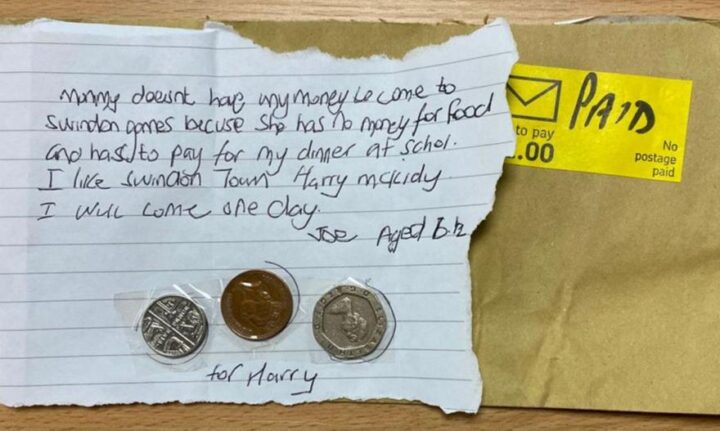 Mummy doesnt have any money to come to
Swindon games becuse she has no money for food
and has to pay for my dinner at schol.
I like Swindon Town Harry mckidy.
I will come one day.
Joe Aged 6 ½
for Harry
PAID
to pay
.00
No
postage
paid